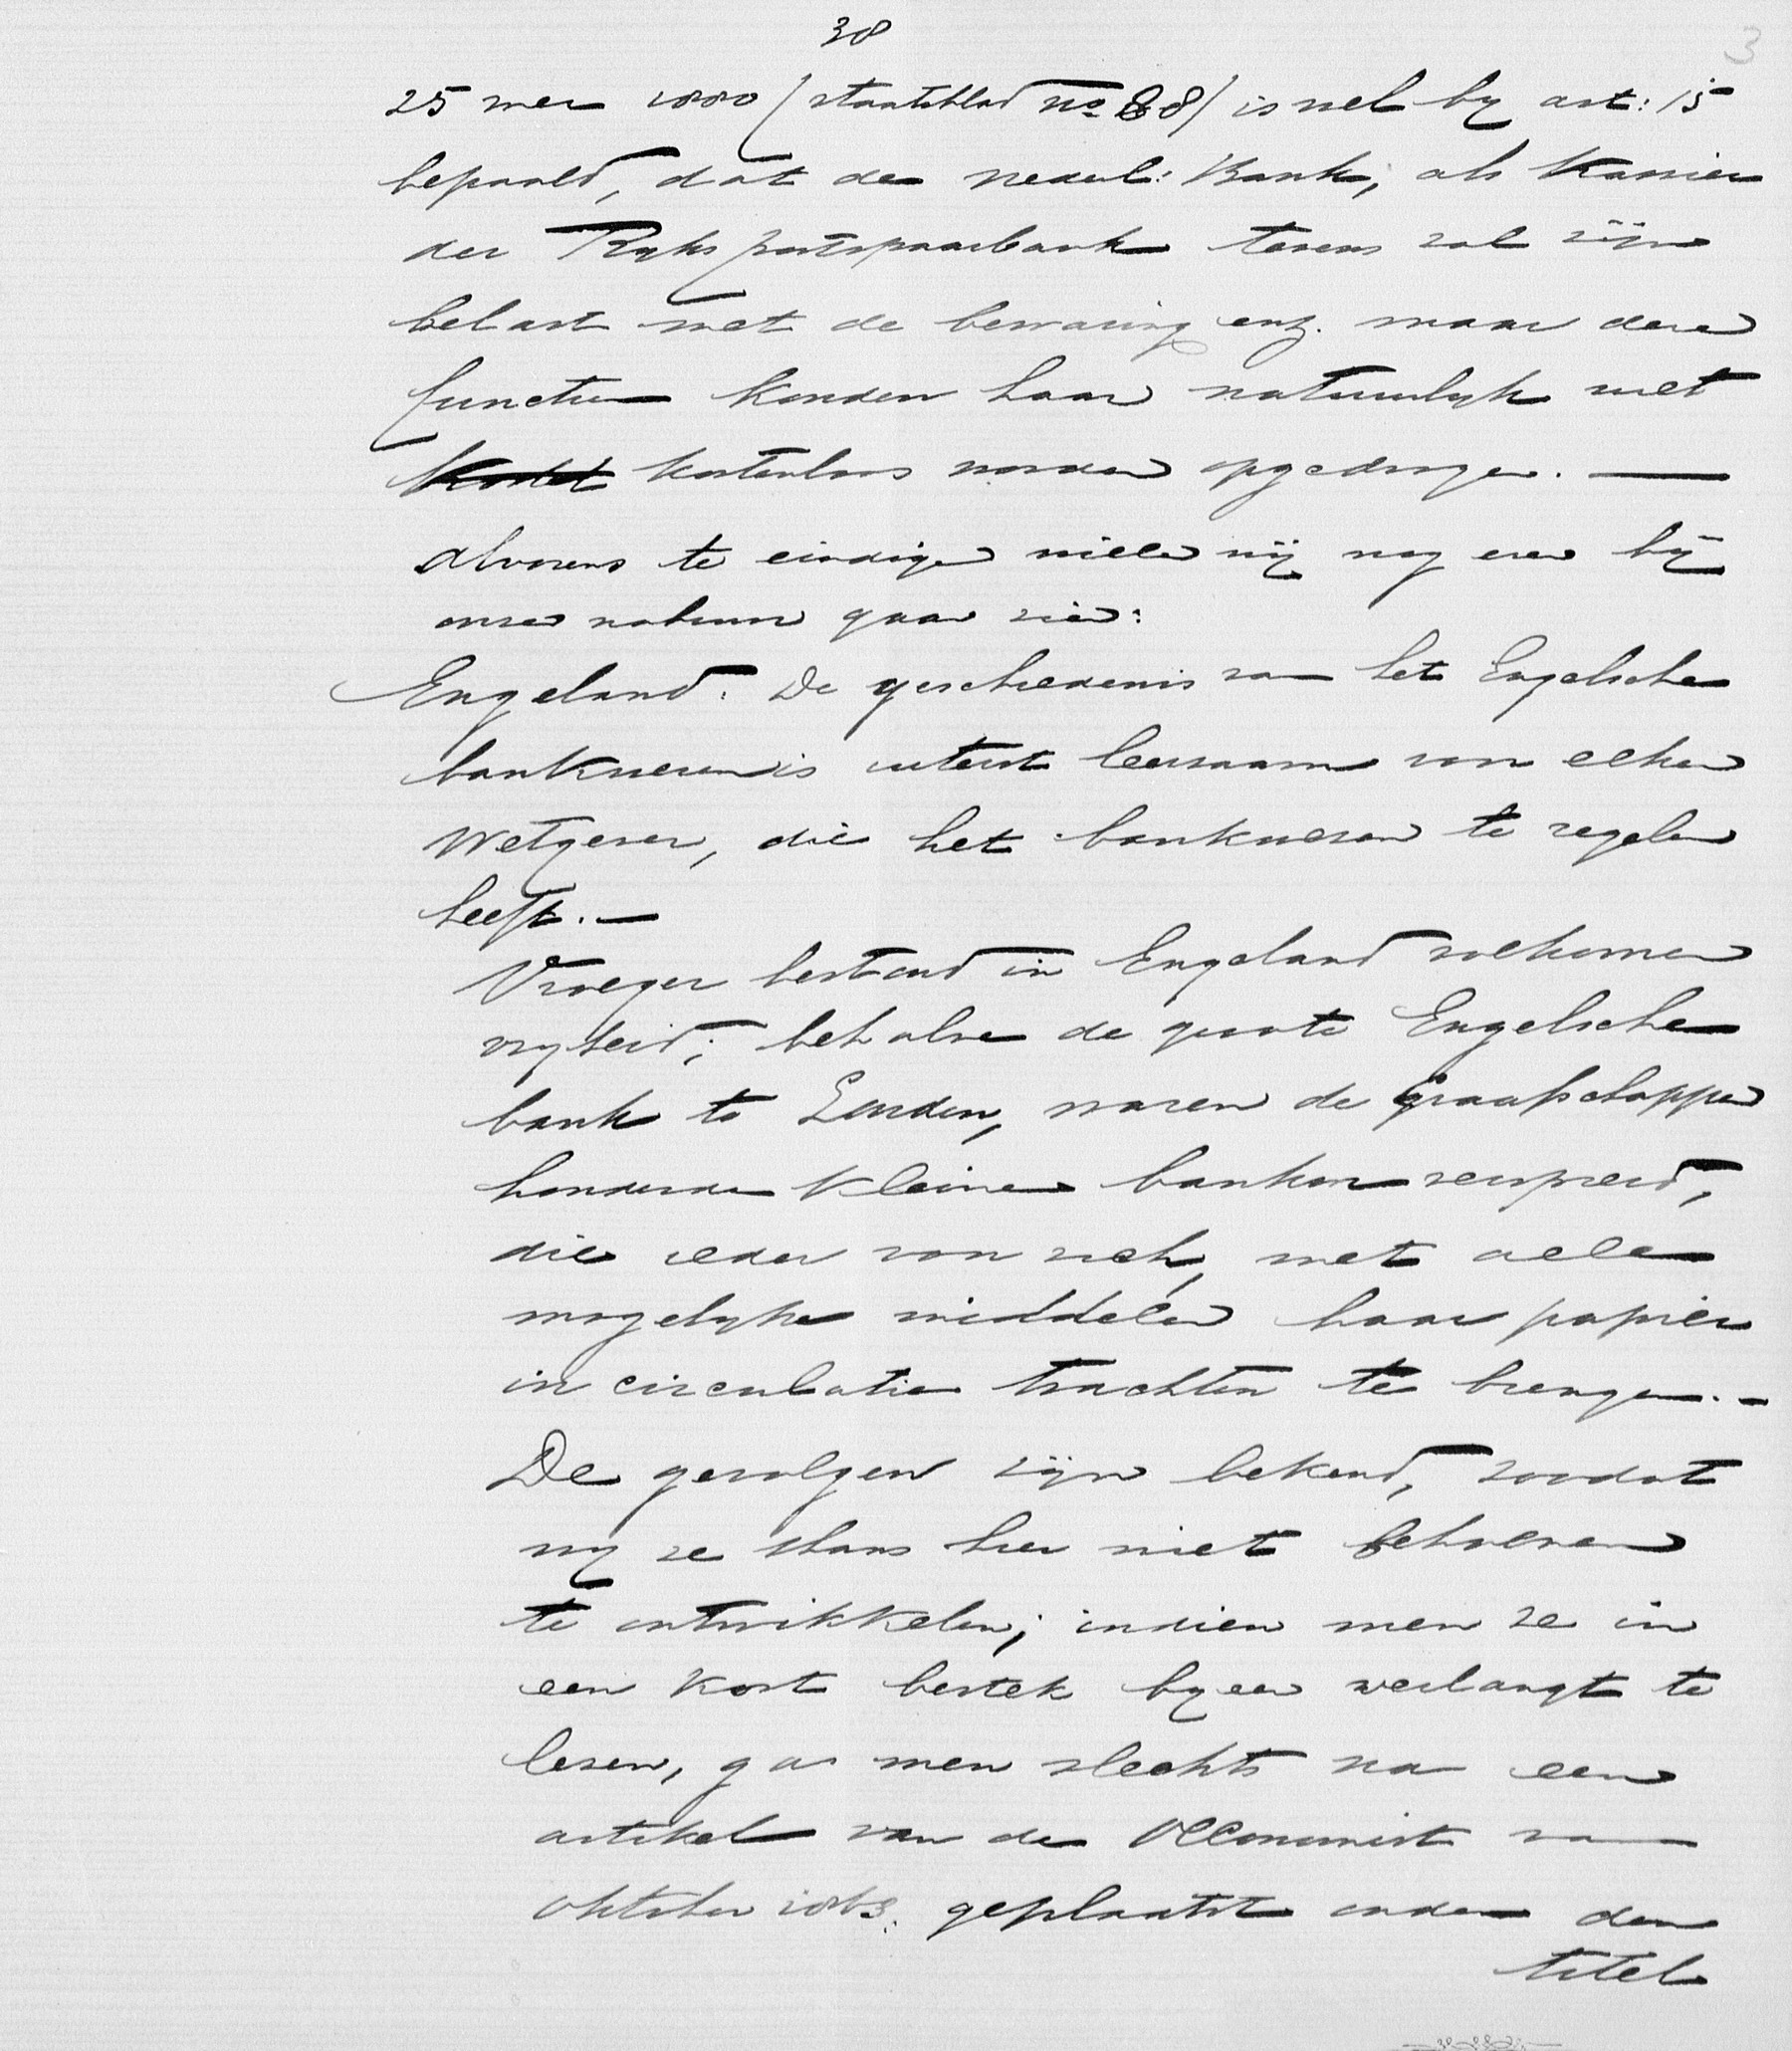 38
3
25 mei 1880 (staatsblad no 88) is wel by art: 15
bepaald, dat de nederl: Bank, als Kassier
der Ryks postspaarbank tevens zal zijn
belast met de bewaring enz. maar deze
functie konden haar natuurlyk niet
kostenloos worden opgedragen. —
Alvorens te eindigen willen wij nog even bij
onze naburen gaan zien:
Engeland. De geschiedenis van het Engelsche
bankwezen is uiterst leerzaam voor elken
wetgever, die het bankwezen te regelen
heeft. —
Vroeger bestond in Engeland volkomen
vryheid; behalve de groote Engelsche
bank te Londen, waren de graafschappen
honderden kleine banken verspreid,
die ieder voor zich, met alle
mogelyke middelen haar papier
in circulatie trachten te brengen. —
De gevolgen zijn bekend, zoodat
wy ze thans hier niet behoeven
te ontwikkelen; indien men ze in
een kort bestek byeen verlangt te
lezen, ga men slechts na een
artikel van de Economist van
oktober 1863. geplaatst onder den
titel